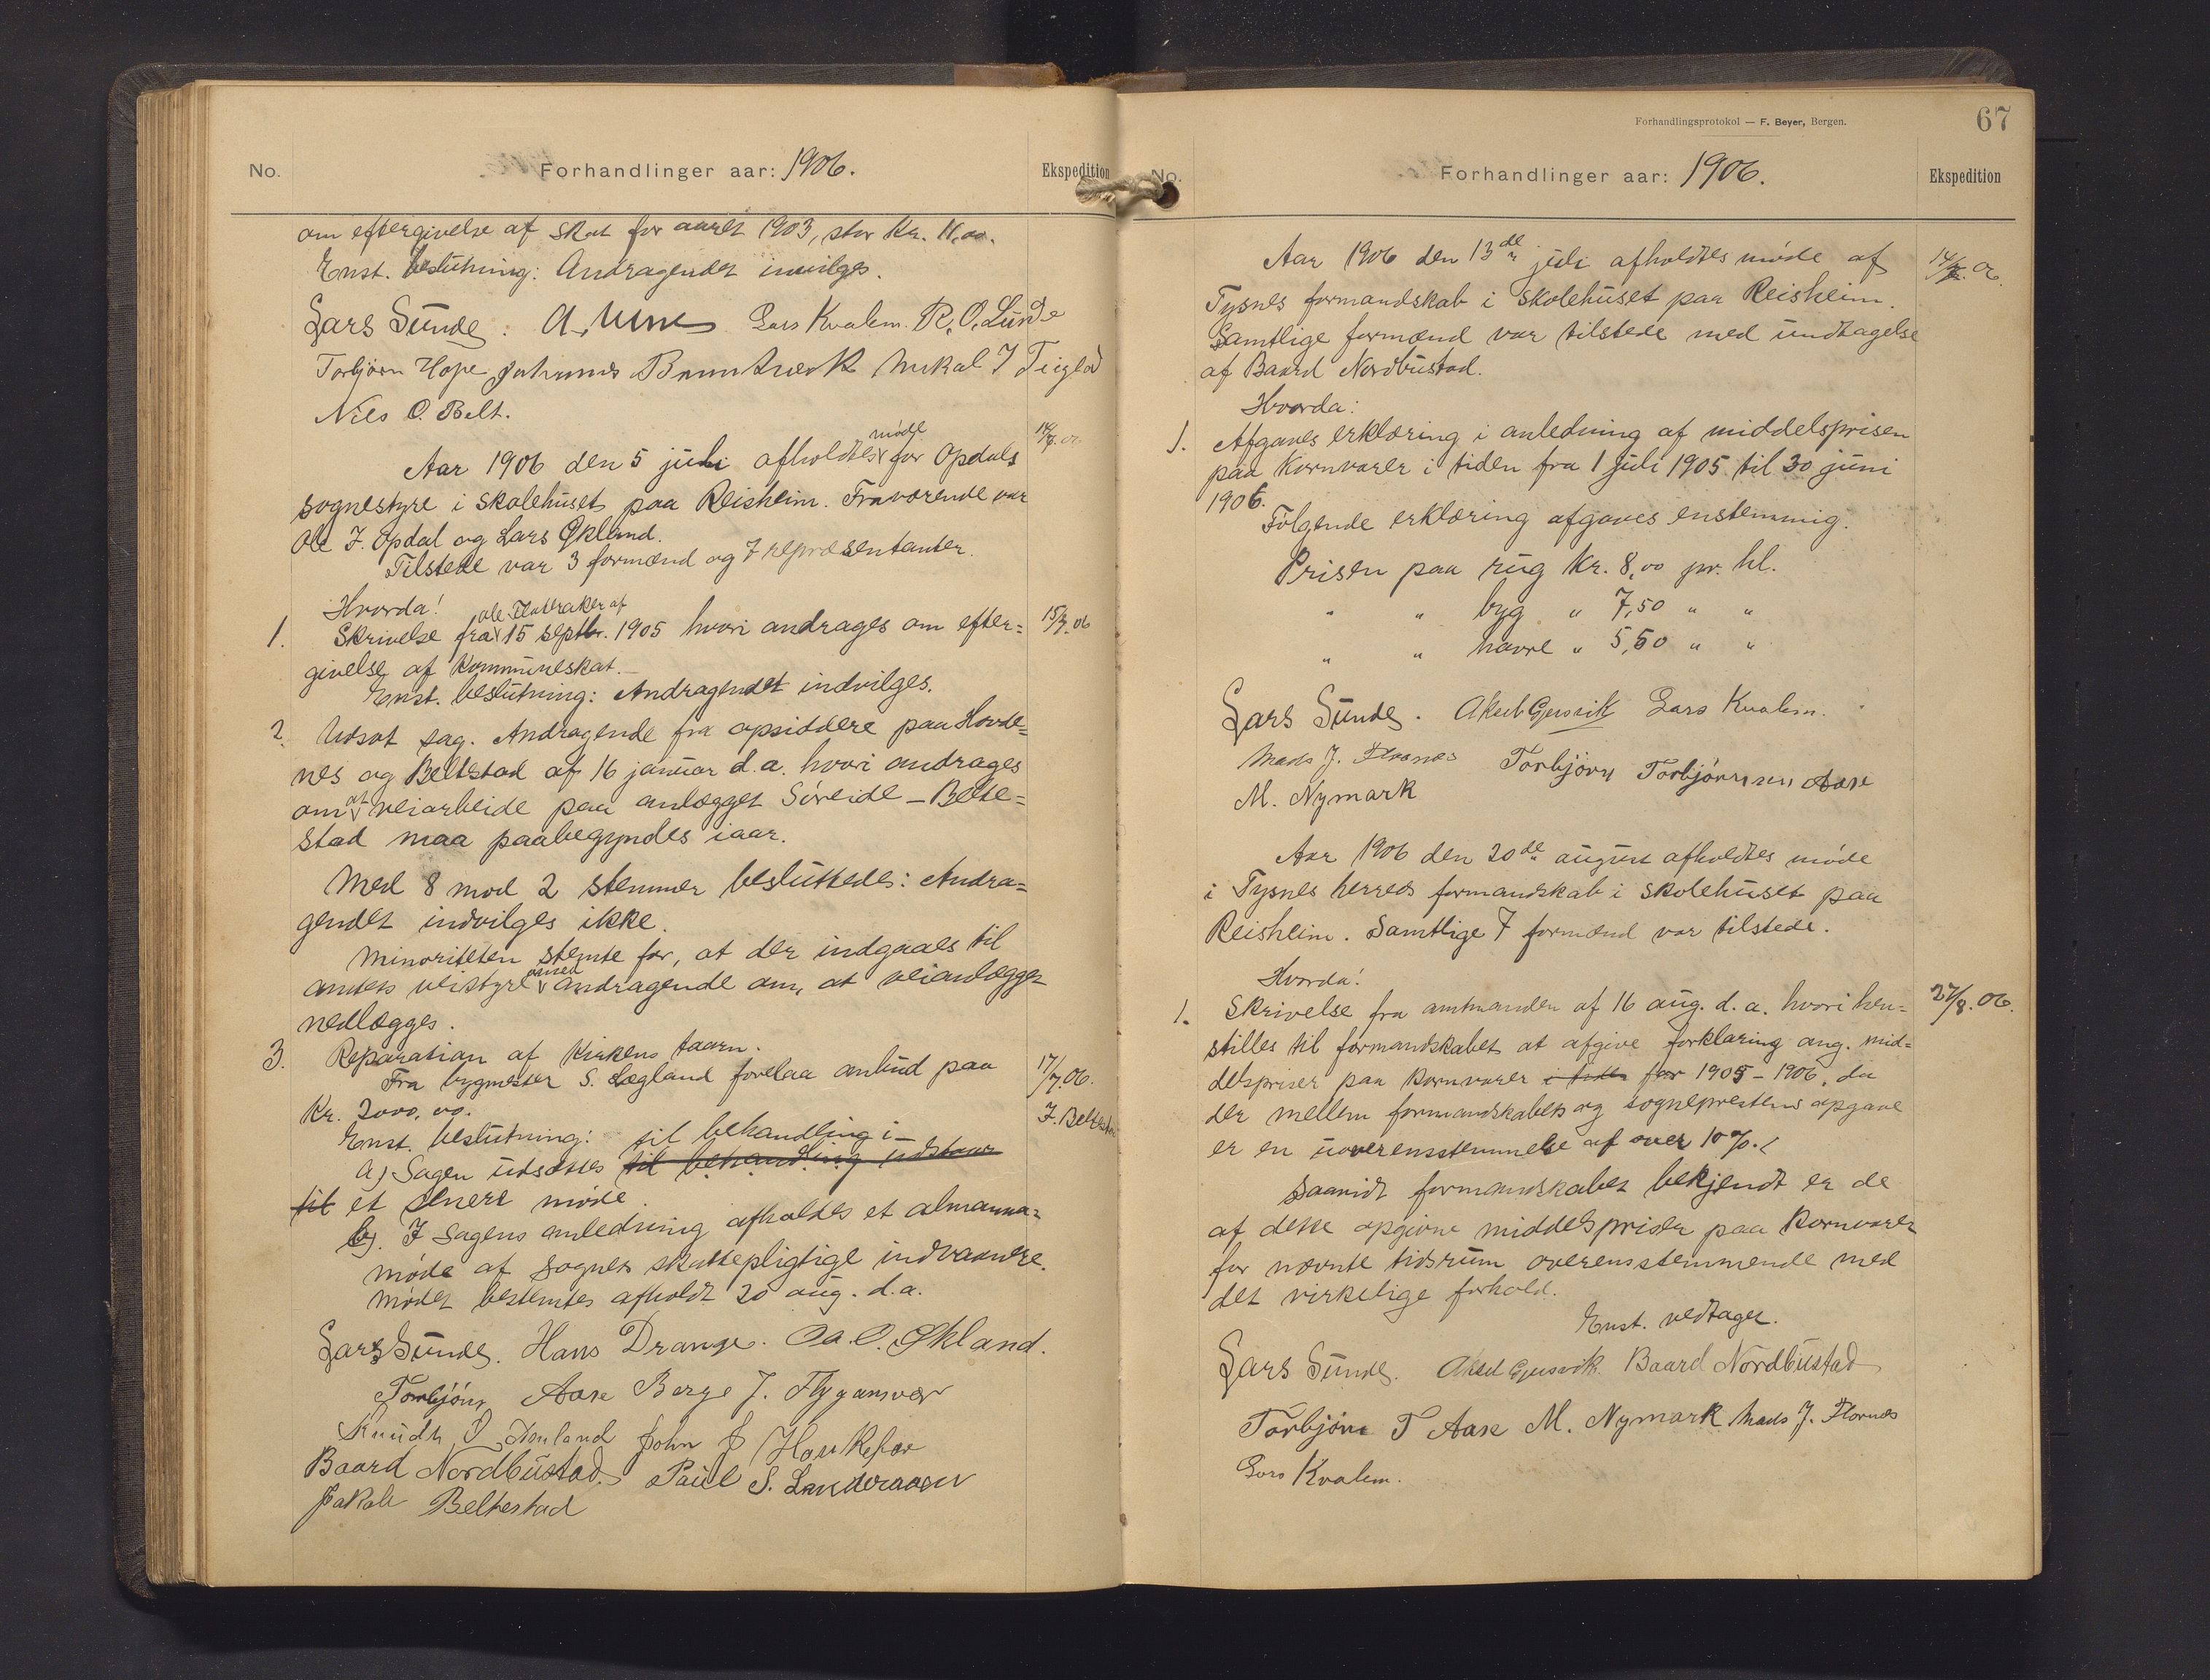 No. Forhandlinger aar: 1906. Ekspedition
om eftergivelse af skat for aaret 1903, stor Kr. 11,00.
Enst. beslutning: Andragendet invilges.
Lars Sunde. Lars Kvalem. R. O. Lunde
Torbjörn Hope Johannes Mikal J Teigland
Nils O. Belt.
Aar 1906 den 5 juli afholdtes møde for Opdals 14/7.06
sognestyre i skolehuset paa Reisheim. Fraværende var
Ole J. Opdal og Lars Økland.
Tilstede var 3 formænd og 7 repræsentanter.
Hvorda!
1. Skrivelse fra Ole Flatraker af 15 septbr. 1905 hvori andrages om efter= 15/7.06
givelse af Kommuneskat.
Enst. beslutning: Andragendet indvilges.
2. Udsat sag. Andragende fra opsiddere paa Hovde=
nes og Beltestad af 16 januar d.a. hvori andrages
om at veiarbeide paa anlægget Søreide – Belte=
stad maa paabegyndes iaar.
Med 8 mod 2 stemmer besluttedes: Andra=
gendet indvilges ikke.
Minoriteten stemte for, at der indgaaes til
amtets veistyre med andragende om, at veianlægget
nedlægges.
3. Reparation af Kirkens taarn.
Fra bygmester S. Lægland forelaa anbud paa 17/7.06.
Kr. 2000,00. J. Beltestad
Enst. beslutning: til behandling i
a) Sagen udsættes til behandling udstaar
til et senere møde.
b). I sagens anledning afholdes et almanna=
møde af sognets skattepligtige indvaanere.
Mødet bestemtes afholdt 20 aug. d.a.
Lars Sunde. Hans Drange. Ola O. Økland.
Torbjörn Aase Berge J. Flygansvær
Knudt O Amland John J Haukefær
Baard Nordbustad. Paul S. Landeraaen
Jakob Beltestad
Forhandlingsprotokol — F. Beyer, Bergen. 67
No. Forhandlinger aar: 1906. Ekspedition
Aar 1906 den 13de juli afholdtes møde af 14/7.06
Tysnes formandskab i skolehuset paa Reisheim.
Samtlige formænd var tilstede med undtagelse
af Baard Nordbustad.
Hvorda:
1. Afgaves erklæring i anledning af middelsprisen
paa Kornvarer i tiden fra 1 juli 1905 til 30 juni
1906.
Følgende erklæring afgaves enstemmig.
Prisen paa rug Kr. 8,00 pr. hl.
" " byg " 7,50 " "
" " havre " 5,50 " "
Lars Sunde. Aksel Gjersvik Lars Kvalem.
Mads J. Flornes Torbjörn Torbjörnsen Aase
M. Nymark
Aar 1906 den 20de august afholdtes møde
i Tysnes herreds formandskab i skolehuset paa
Reisheim. Samtlige 7 formænd var tilstede.
Hvorda!
1. Skrivelse fra amtmanden af 16 aug. d.a. hvori hen= 27/8.06.
stilles til formandskabet at afgive forklaring ang. mid=
delspriser paa Kornvarer i tiden for 1905 – 1906, da
der mellem formandskabets og sogneprestens opgave
er en uoverensstemmelse af over 10 %.
Saavidt formandskabet bekjendt er de
af dette opgivne middelspriser paa Kornvarer
for nævnte tidsrum overensstemmende med
det virkelige forhold.
Enst. vedtaget.
Lars Sunde. Aksel Gjersvik. Baard Nordbustad
Torbjörn T Aase M. Nymark Mads J. Flornes
Lars Kvalem.